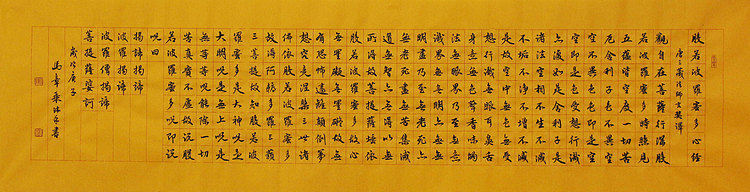 般若波羅蜜多心經
唐三藏法師玄奘譯
觀自在菩薩行深般
若波羅蜜多時照見
五蘊皆空度一切苦
厄舍利子色不異空
空不異色色即是空
空即是色受想行識
亦復如是舍利子是
諸法空相不生不滅
不垢不淨不增不減
是故空中無色無受
想行識無眼耳鼻舌
身意無色聲香味觸
法無眼界乃至無意
識界無無明亦無無
明盡乃至無老死亦
無老死盡無苦集滅
道無智亦無得以無
所得故菩提薩埵依
般若波羅蜜多故心
無罣礙無罣礙故無
有恐怖遠離顛倒夢
想究竟涅槃三世諸
佛依般若波羅蜜多
故得阿耨多羅三藐
三菩提故知般若波
羅蜜多是大神咒是
大明咒是無上咒是
無等等咒能除一切
苦真實不虛故說般
若波羅蜜多咒即說
咒曰
揭諦揭諦
波羅揭諦
波羅僧揭諦
菩提薩婆訶
歲次庚子
馬章乘沐手書